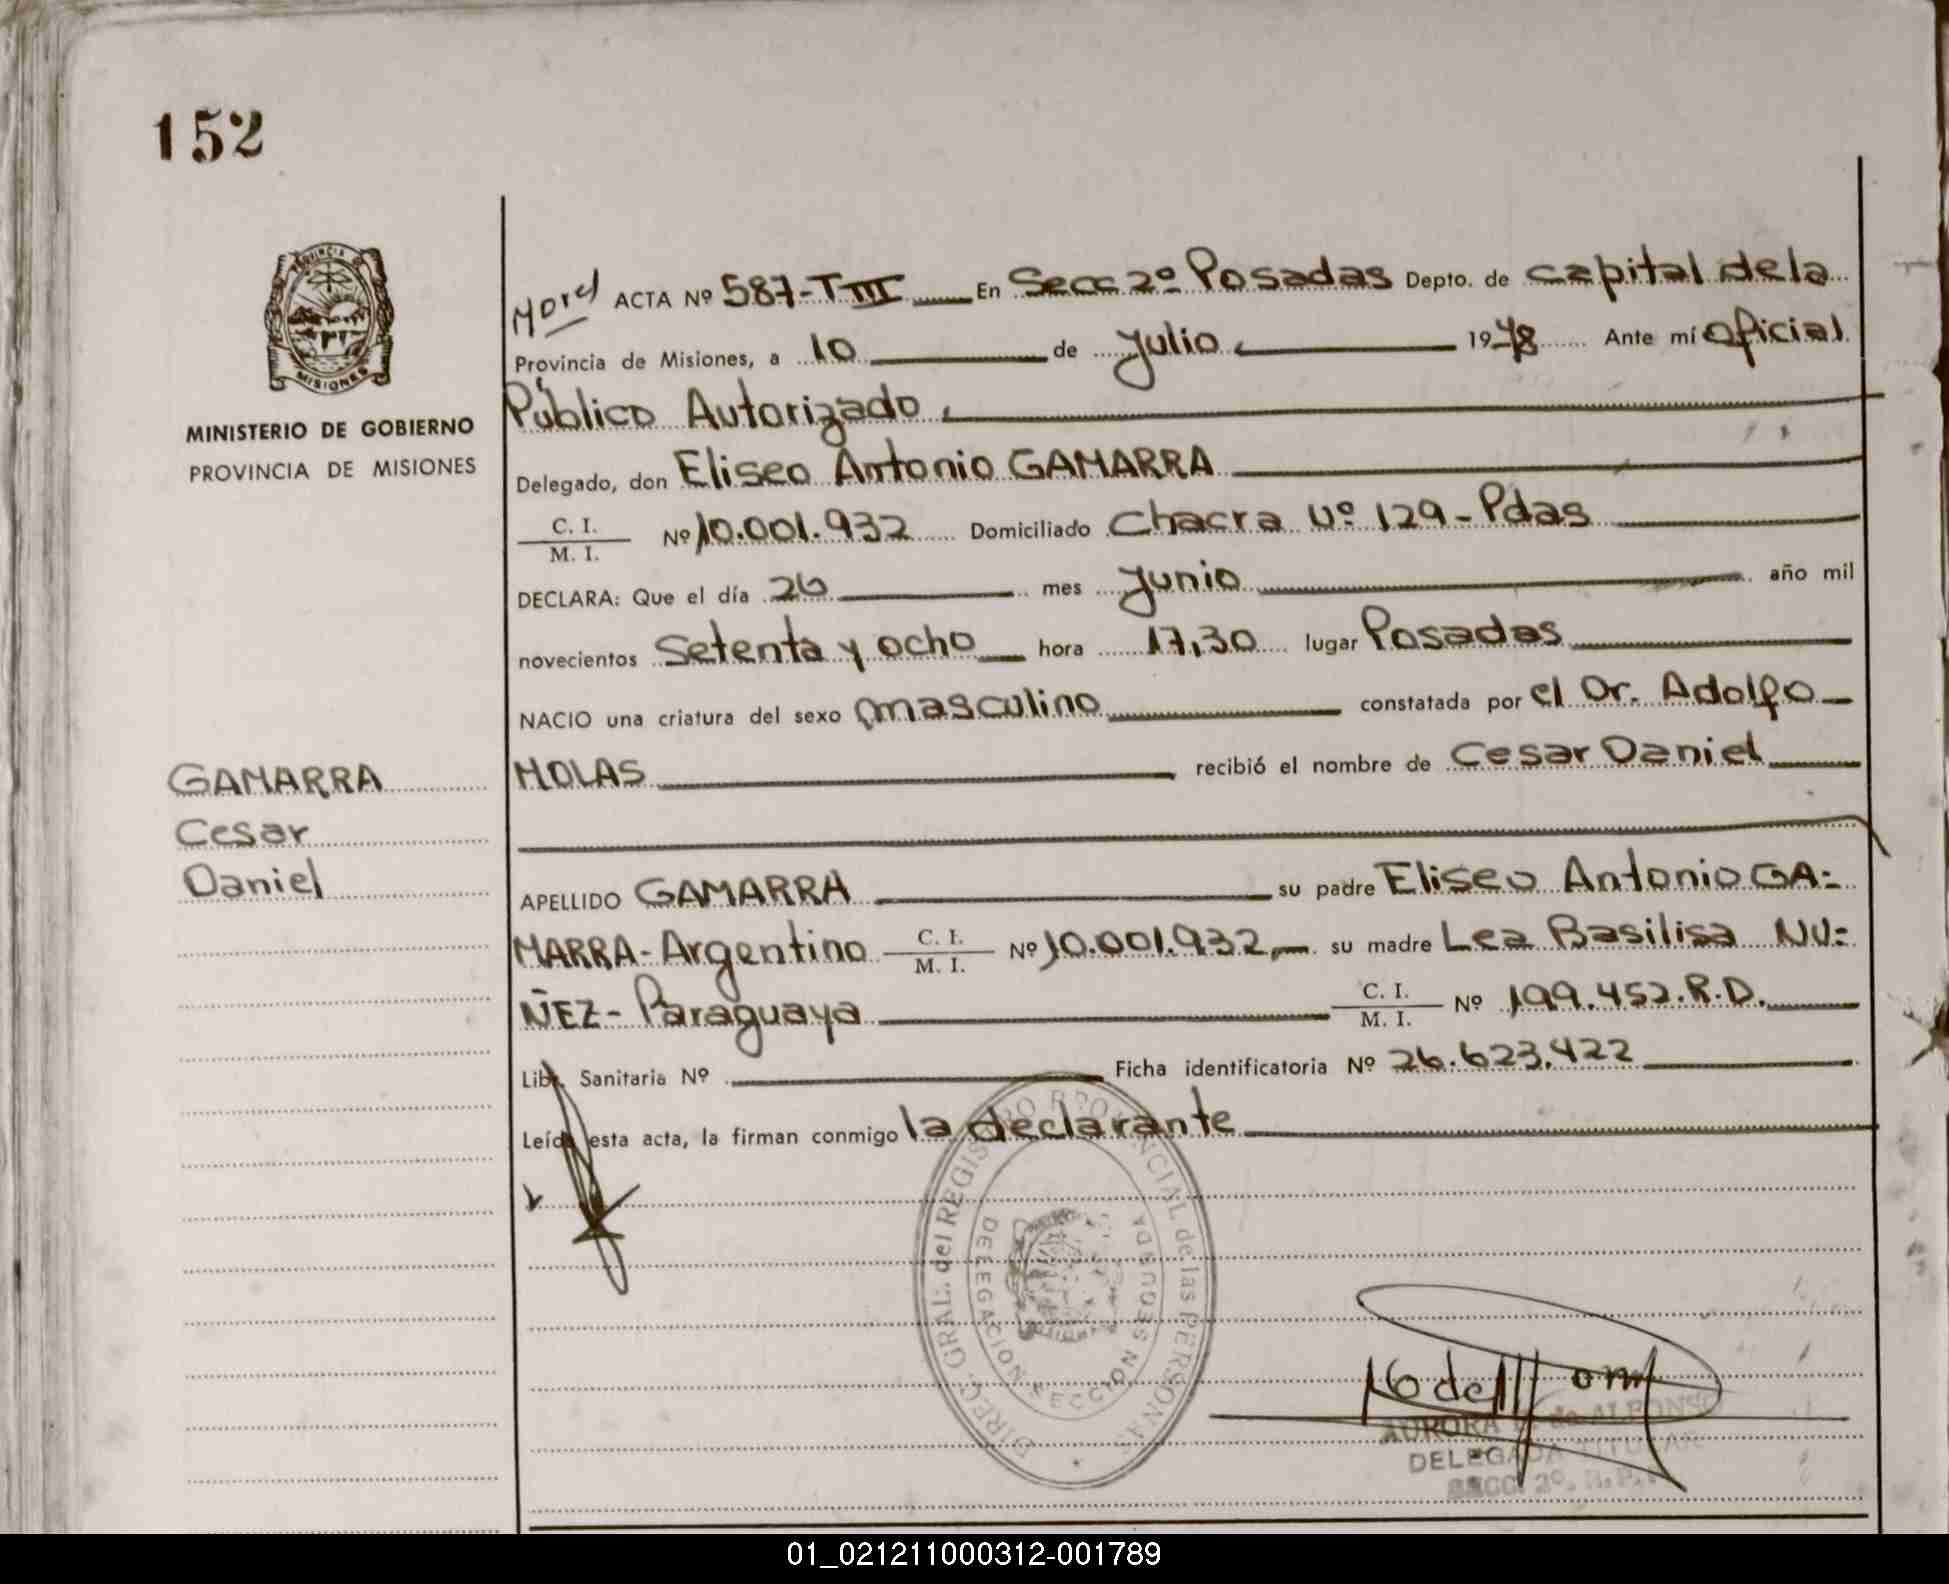 152
PROVINCIA DE
MISIONES
MINISTERIO DE GOBIERNO
PROVINCIA DE MISIONES
ACTA Nº 587-TIII En Secc 2º Posadas Depto. de capital dela
Provincia de Misiones, a 10 de julio 1978 Ante mí Oficial
Público Autorizado
Delegado, don Eliseo Antonio GAMARRA
C. I.
M. I. Nº 10.001.932 Domiciliado Chacra Nº 129-Pdas
DECLARA: Que el día 26 mes junio año mil
novecientos Setenta y ocho hora 17,30 lugar Posadas
NACIO una criatura del sexo masculino constatada por el Dr. Adolfo
MOLAS recibió el nombre de Cesar Daniel
GAMARRA
Cesar
Daniel
APELLIDO GAMARRA su padre Eliseo Antonio GA-
MARRA-Argentino C. I. M. I. Nº 10.001.932,- su madre Lea Basilisa NU-
ÑEZ- Paraguaya C. I. M. I. Nº 199.452.R.D.
Libr. Sanitaria Nº Ficha identificatoria Nº 26.623.422
Leída esta acta, la firman conmigo la declarante
DIREC. GRAL. del REGISTRO PROVINCIAL de las PERSONAS
DELEGACION SECCION SEGUNDA
AURORA de ALFONSO
DELEGADA TITULAR
SECC. 2º. R.P.P.
01_021211000312-001789